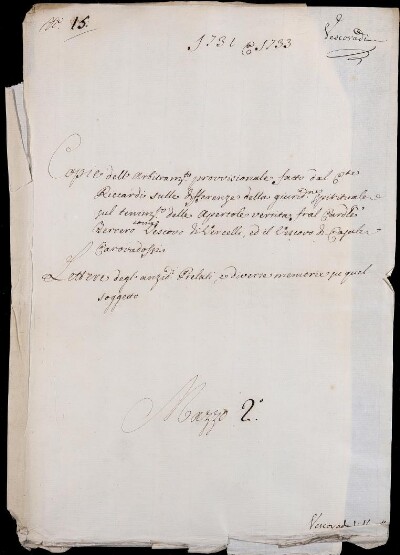 N.° 15.
Vescovadi
1731 e 1733
Copie dell'Arbitram.to provisionale fatto dal C.te
Riccardi sulle differenze della giurisd.ne spirituale
sul tenim.to delle Apertole vertita fra'l Card.le
Ferrero Vescovo di Vercelli, ed il Vescovo di Casale
Caravadossi
Lettere degli anzid.i Prelati, e diverse memorie su quel
soggetto
Mazzo 2.°
Vescovadi